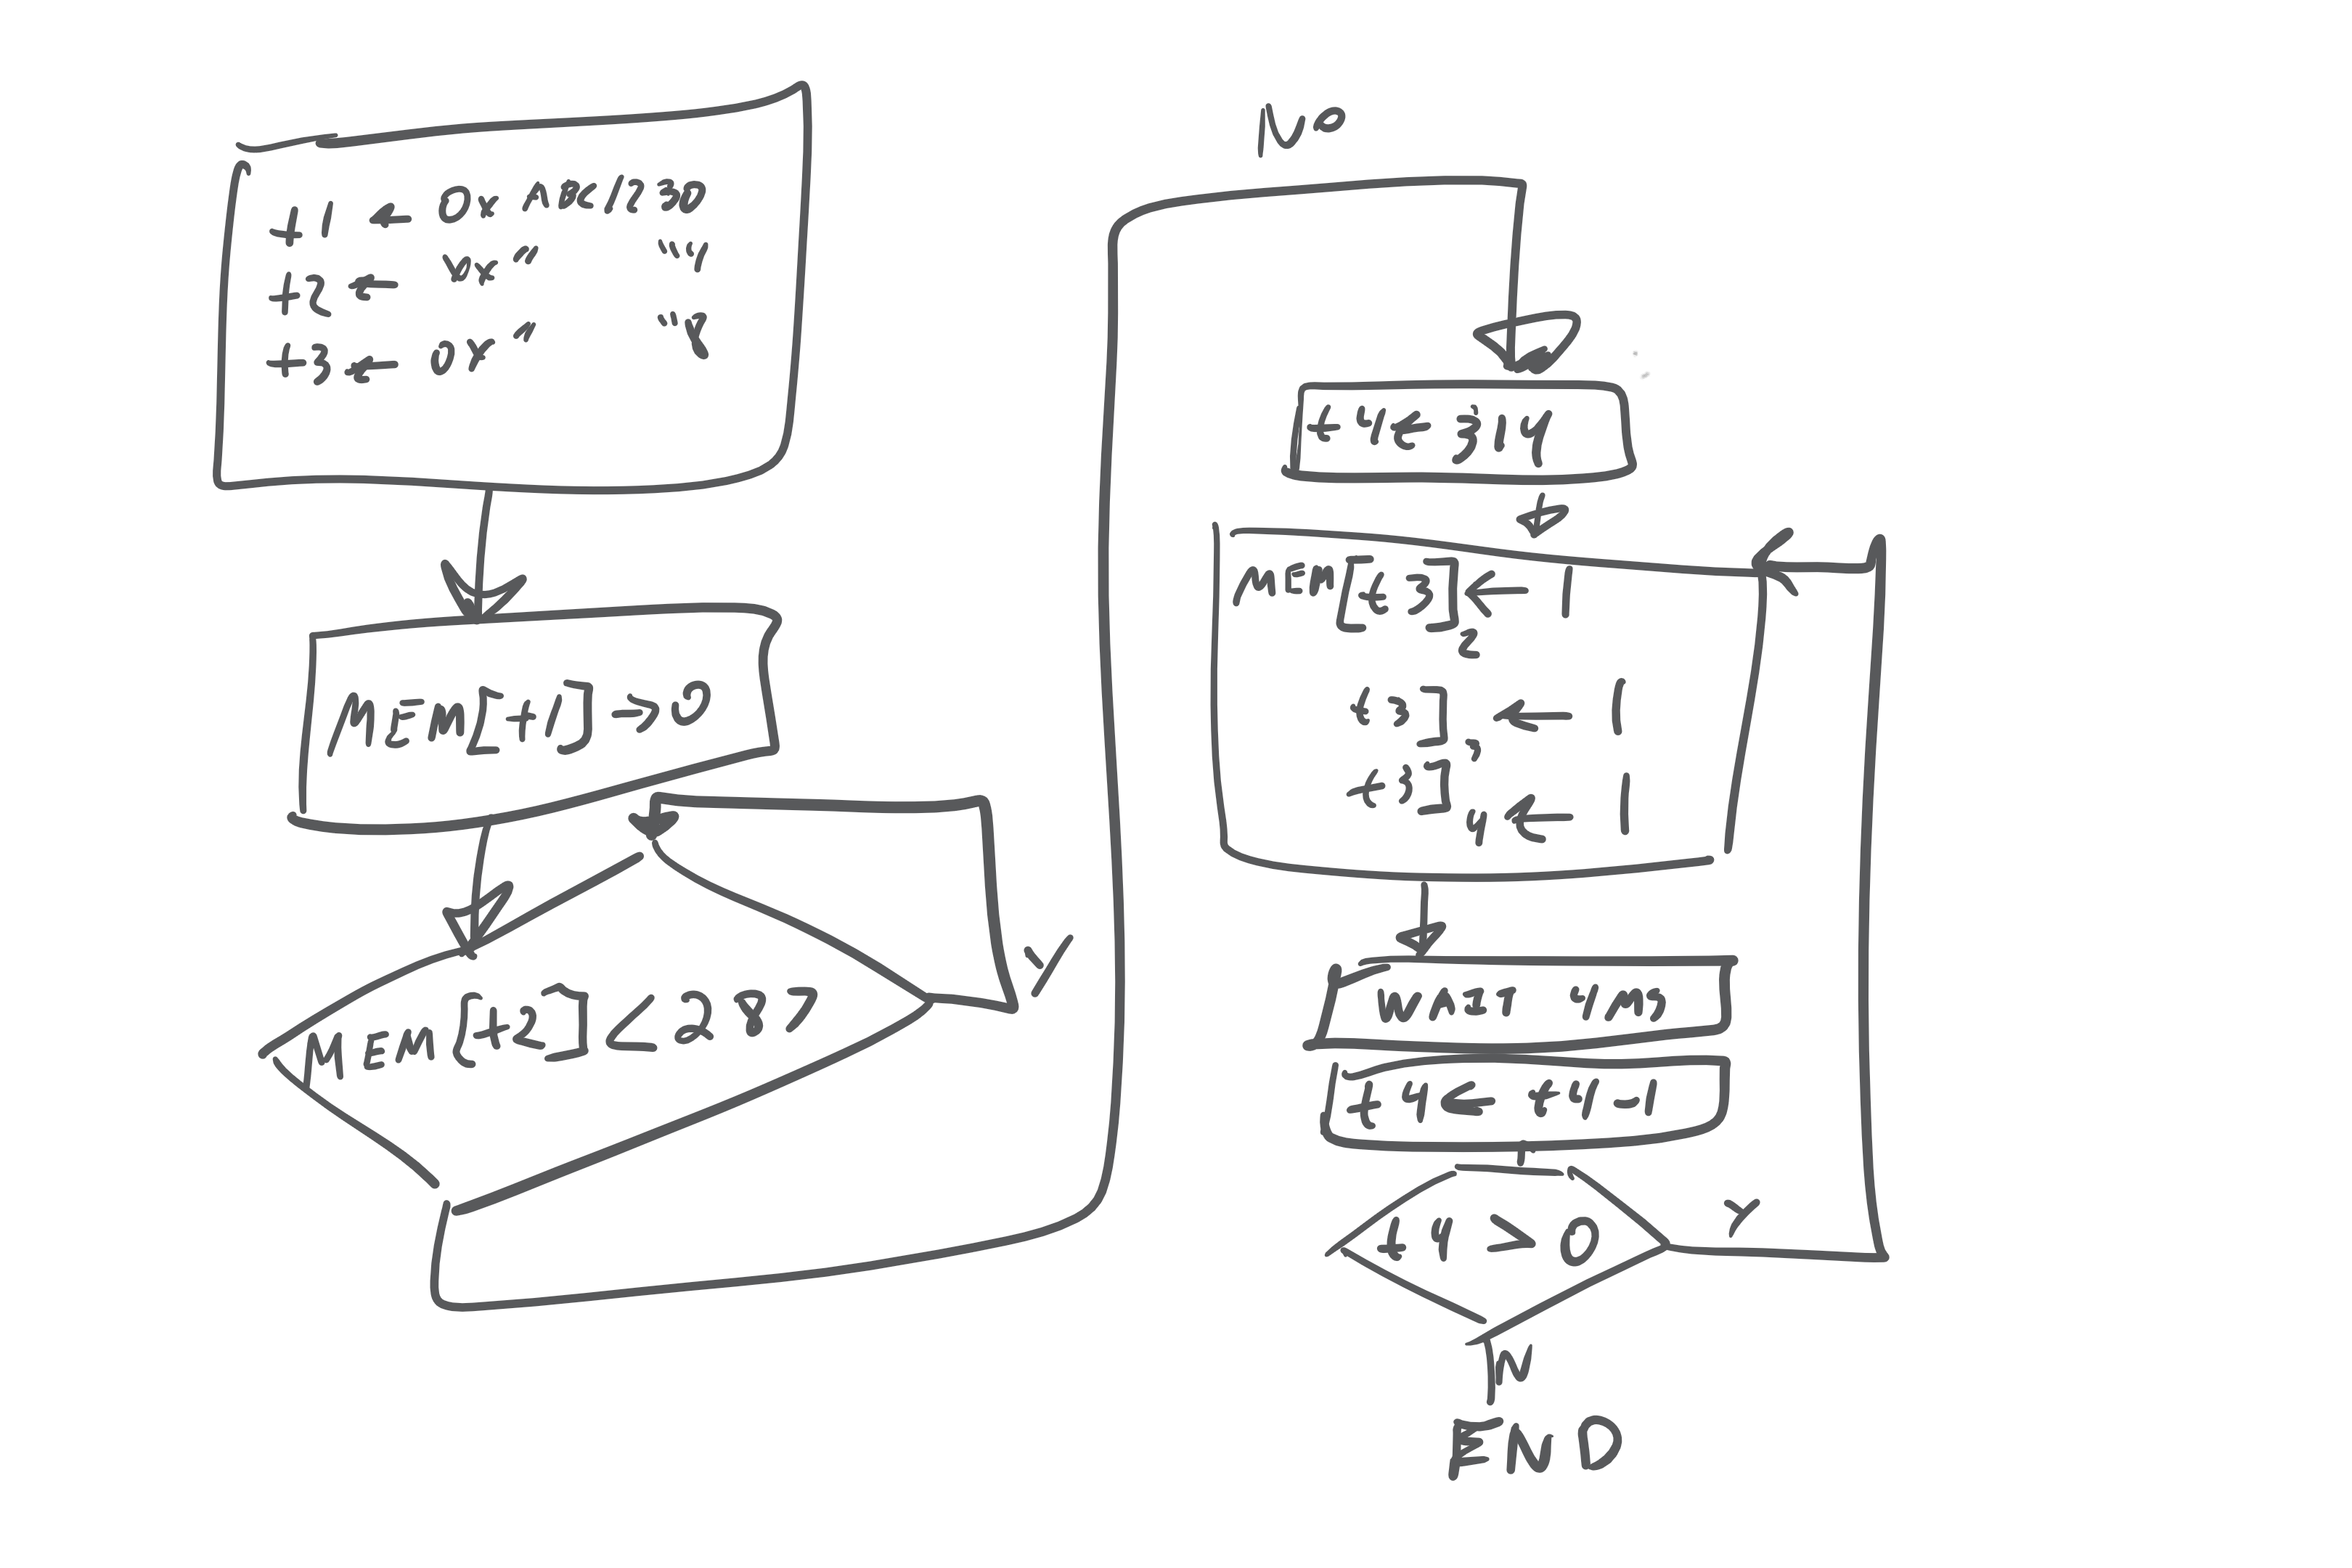 t1 ← 0x ABC12 30
t2 ← 0x " " " 4
t3 ← 0x " " " 8
MEM[t1] → 0
MEM[t2] < 287
Y
No
t4 ← 314
MEM[t3]2 ← 1
t3]3 ← 1
t3]4 ← 1
WAIT 4MS
t4 ← t4-1
t4 > 0
Y
N
END